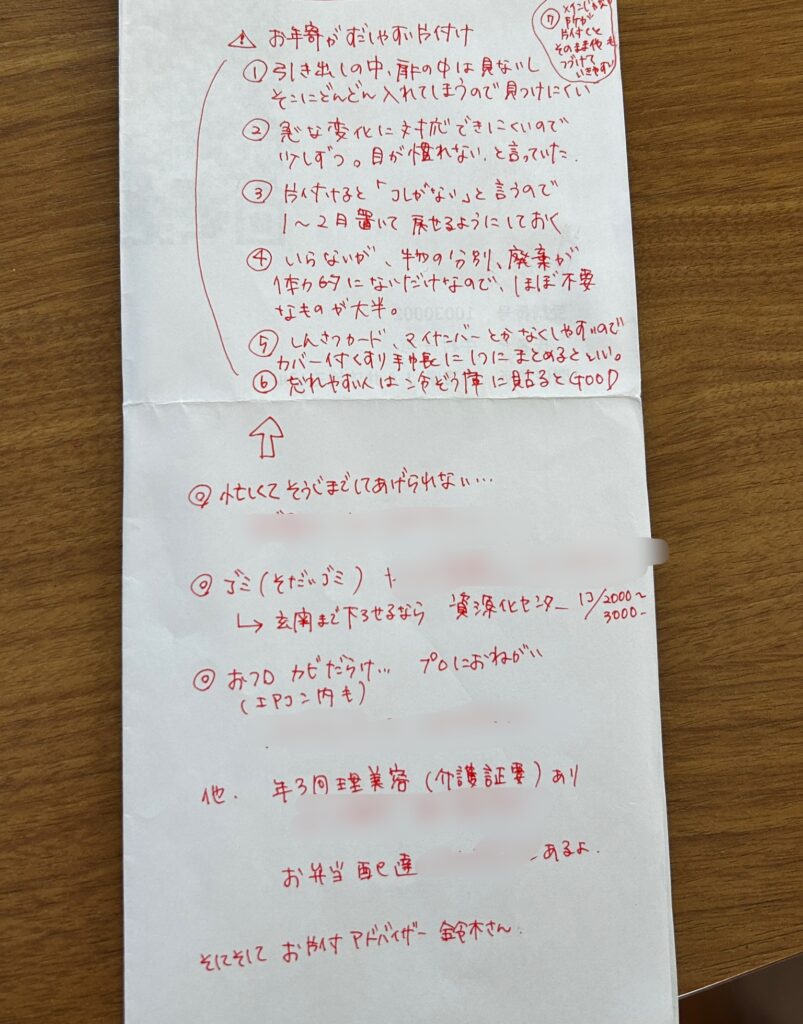 ⚠ お年寄がすごしやすい片付け
① 引き出しの中、扉の中は見ないし
そこにどんどん入れてしまうので見つけにくい
② 急な変化に対応できにくいので
少しずつ。目が慣れない、と言っていた.
③ 片付けると「コレがない」と言うので
1〜2月置いて戻せるようにしておく
④ いらないが、物の分別、廃棄が
体力的にないだけなので、ほぼ不要
なものが大半。
⑤ しんさつカード、マイナンバーとかなくしやすいので
カバー付くすり手帳に1つにまとめるといい。
⑥ 忘れやすい人は冷ぞう庫に貼るとGOOD
⑦
だけが
片付くと
そのまま他も
つづけて
いきやすい
⇧
◎ 忙しくてそうじまでしてあげられない…
◎ ゴミ(そだいゴミ)
↳ 玄関まで下ろせるなら 資源化センター 1コ/2000〜
3000-
◎ おフロ カビだらけ… プロにおねがい
(エアコン内も)
他. 年3回理美容(介護証要)あり
お弁当配達 あるよ.
そしてそして お片付アドバイザー 鈴木さん.